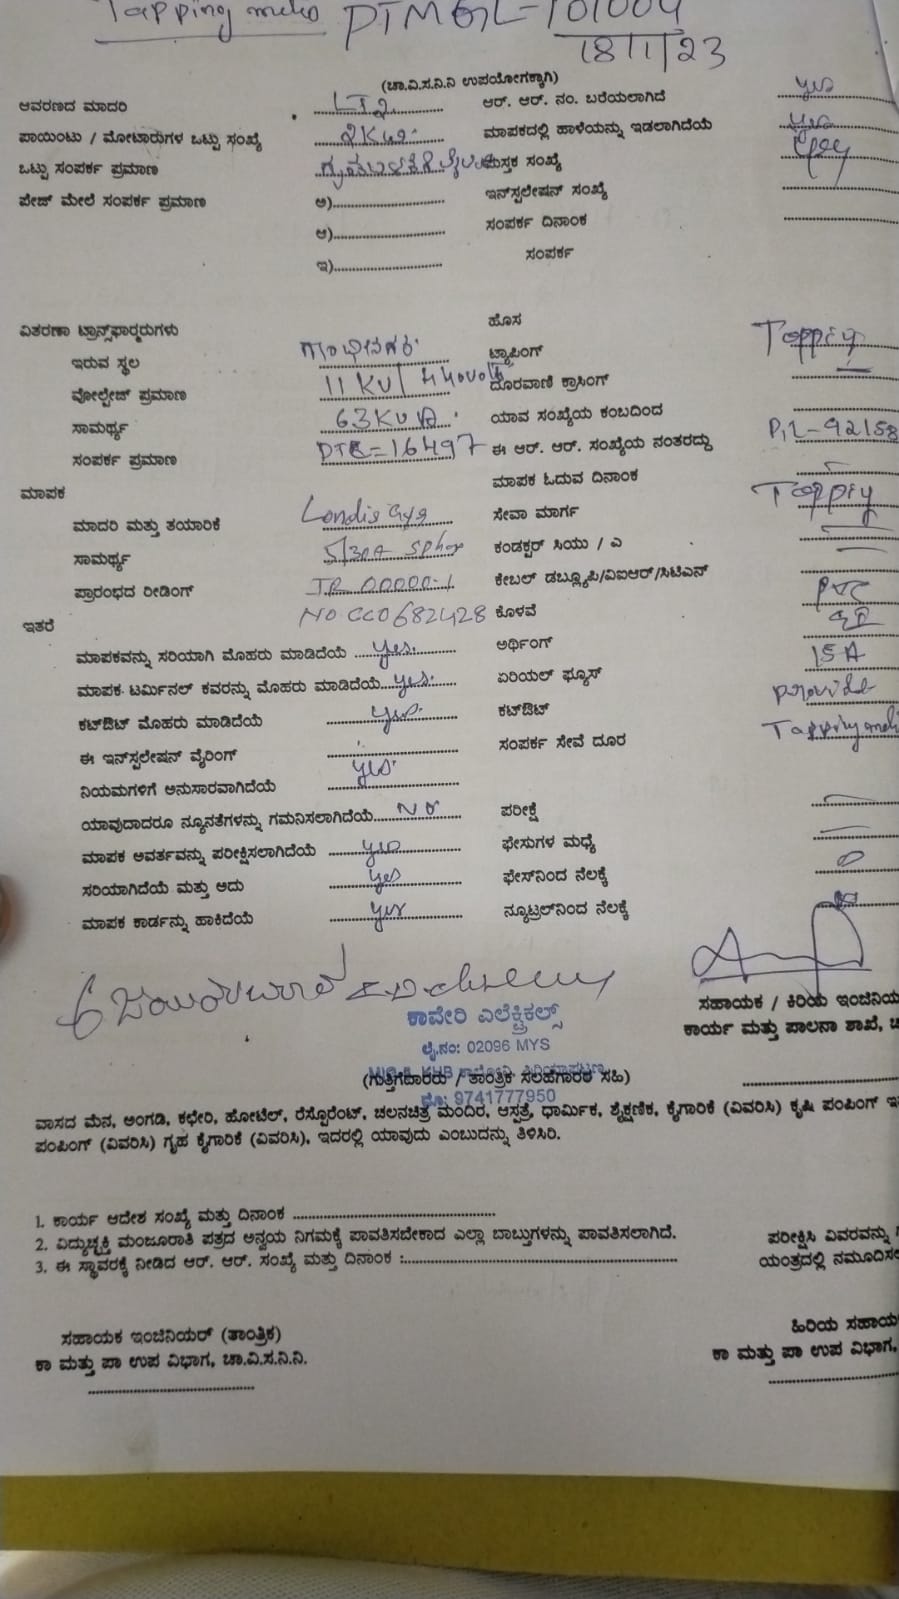 Tapping meter PTMGL-101004
18/1/23
(ಚಾ.ವಿ.ಸ.ನಿ.ನಿ ಉಪಯೋಗಕ್ಕಾಗಿ)
ಆವರಣದ ಮಾದರಿ LT2 ಆರ್. ಆರ್. ನಂ. ಬರೆಯಲಾಗಿದೆ yes
ಪಾಯಿಂಟು / ಮೋಟಾರುಗಳ ಒಟ್ಟು ಸಂಖ್ಯೆ ಮಾಪಕದಲ್ಲಿ ಹಾಳೆಯನ್ನು ಇಡಲಾಗಿದೆಯೆ yes
ಒಟ್ಟು ಸಂಪರ್ಕ ಪ್ರಮಾಣ ಪುಸ್ತಕ ಸಂಖ್ಯೆ
ಪೇಜ್ ಮೇಲೆ ಸಂಪರ್ಕ ಪ್ರಮಾಣ ಅ) ಇನ್‌ಸ್ಟಲೇಷನ್ ಸಂಖ್ಯೆ
ಆ) ಸಂಪರ್ಕ ದಿನಾಂಕ
ಇ) ಸಂಪರ್ಕ
ವಿತರಣಾ ಟ್ರಾನ್ಸ್‌ಫಾರ್‍ಮರುಗಳು ಹೊಸ
ಇರುವ ಸ್ಥಲ ಟ್ಯಾಪಿಂಗ್ Tappiy
ವೋಲ್ಟೇಜ್ ಪ್ರಮಾಣ 11 KV/ 440volt ದೂರವಾಣಿ ಕ್ರಾಸಿಂಗ್
ಸಾಮರ್ಥ್ಯ 63KVA ಯಾವ ಸಂಖ್ಯೆಯ ಕಂಬದಿಂದ
ಸಂಪರ್ಕ ಪ್ರಮಾಣ DTR=16497 ಈ ಆರ್. ಆರ್. ಸಂಖ್ಯೆಯ ನಂತರದ್ದು PIL-92158
ಮಾಪಕ ಮಾಪಕ ಓದುವ ದಿನಾಂಕ
ಮಾದರಿ ಮತ್ತು ತಯಾರಿಕೆ Landis Gyr ಸೇವಾ ಮಾರ್ಗ Tappiy
ಸಾಮರ್ಥ್ಯ 5/30A ಕಂಡಕ್ಟರ್ ಸಿಯು / ಎ
ಪ್ರಾರಂಭದ ರೀಡಿಂಗ್ IR 00000-1 ಕೇಬಲ್ ಡಬ್ಲ್ಯೂಪಿ/ವಿಐಆರ್/ಸಿಟಿಎಸ್
ಇತರೆ NO CC0682428 ಕೊಳವೆ PVC
ಮಾಪಕವನ್ನು ಸರಿಯಾಗಿ ಮೊಹರು ಮಾಡಿದೆಯೆ yes. ಅರ್ಥಿಂಗ್
ಮಾಪಕ ಟರ್ಮಿನಲ್ ಕವರನ್ನು ಮೊಹರು ಮಾಡಿದೆಯೆ yes. ಏರಿಯಲ್ ಫ್ಯೂಸ್ 15A
ಕಟ್‌ಔಟ್ ಮೊಹರು ಮಾಡಿದೆಯೆ yes. ಕಟ್‌ಔಟ್ provide
ಈ ಇನ್‌ಸ್ಟಲೇಷನ್ ವೈರಿಂಗ್ ಸಂಪರ್ಕ ಸೇವೆ ದೂರ
ನಿಯಮಗಳಿಗೆ ಅನುಸಾರವಾಗಿದೆಯೆ yes.
ಯಾವುದಾದರೂ ನ್ಯೂನತೆಗಳನ್ನು ಗಮನಿಸಲಾಗಿದೆಯೆ No ಪರೀಕ್ಷೆ
ಮಾಪಕ ಅವರ್ತವನ್ನು ಪರೀಕ್ಷಿಸಲಾಗಿದೆಯೆ yes ಫೇಸುಗಳ ಮಧ್ಯೆ
ಸರಿಯಾಗಿದೆಯೆ ಮತ್ತು ಅದು yes ಫೇಸ್‌ನಿಂದ ನೆಲಕ್ಕೆ 0
ಮಾಪಕ ಕಾರ್ಡನ್ನು ಹಾಕಿದೆಯೆ yes ನ್ಯೂಟ್ರಲ್‌ನಿಂದ ನೆಲಕ್ಕೆ
ಸಹಾಯಕ / ಕಿರಿಯ ಇಂಜಿನಿಯ
ಕಾವೇರಿ ಎಲೆಕ್ಟ್ರಿಕಲ್ಸ್
ಕಾರ್ಯ ಮತ್ತು ಪಾಲನಾ ಶಾಖೆ, ಚಾ
ಲೈ.ನಂ: 02096 MYS
(ಗುತ್ತಿಗೆದಾರರು / ತಾಂತ್ರಿಕ ಸಲಹೆಗಾರರ ಸಹಿ)
ಮೊ: 9741777950
ವಾಸದ ಮನೆ, ಅಂಗಡಿ, ಕಛೇರಿ, ಹೋಟೆಲ್, ರೆಸ್ಟೊರೆಂಟ್, ಚಲನಚಿತ್ರ ಮಂದಿರ, ಆಸ್ಪತ್ರೆ, ಧಾರ್ಮಿಕ, ಶೈಕ್ಷಣಿಕ, ಕೈಗಾರಿಕೆ (ವಿವರಿಸಿ) ಕೃಷಿ ಪಂಪಿಂಗ್
ಪಂಪಿಂಗ್ (ವಿವರಿಸಿ) ಗೃಹ ಕೈಗಾರಿಕೆ (ವಿವರಿಸಿ), ಇದರಲ್ಲಿ ಯಾವುದು ಎಂಬುದನ್ನು ತಿಳಿಸಿರಿ.
1. ಕಾರ್ಯ ಆದೇಶ ಸಂಖ್ಯೆ ಮತ್ತು ದಿನಾಂಕ
2. ವಿದ್ಯುಚ್ಛಕ್ತಿ ಮಂಜೂರಾತಿ ಪತ್ರದ ಅನ್ವಯ ನಿಗಮಕ್ಕೆ ಪಾವತಿಸಬೇಕಾದ ಎಲ್ಲಾ ಬಾಬ್ತುಗಳನ್ನು ಪಾವತಿಸಲಾಗಿದೆ. ಪರೀಕ್ಷಿಸಿ ವಿವರವನ್ನು
3. ಈ ಸ್ಥಾವರಕ್ಕೆ ನೀಡಿದ ಆರ್. ಆರ್. ಸಂಖ್ಯೆ ಮತ್ತು ದಿನಾಂಕ : ಯಂತ್ರದಲ್ಲಿ ನಮೂದಿಸಲ
ಸಹಾಯಕ ಇಂಜಿನಿಯರ್ (ತಾಂತ್ರಿಕ) ಹಿರಿಯ ಸಹಾಯ
ಕಾ ಮತ್ತು ಪಾ ಉಪ ವಿಭಾಗ, ಚಾ.ವಿ.ಸ.ನಿ.ನಿ. ಕಾ ಮತ್ತು ಪಾ ಉಪ ವಿಭಾಗ,